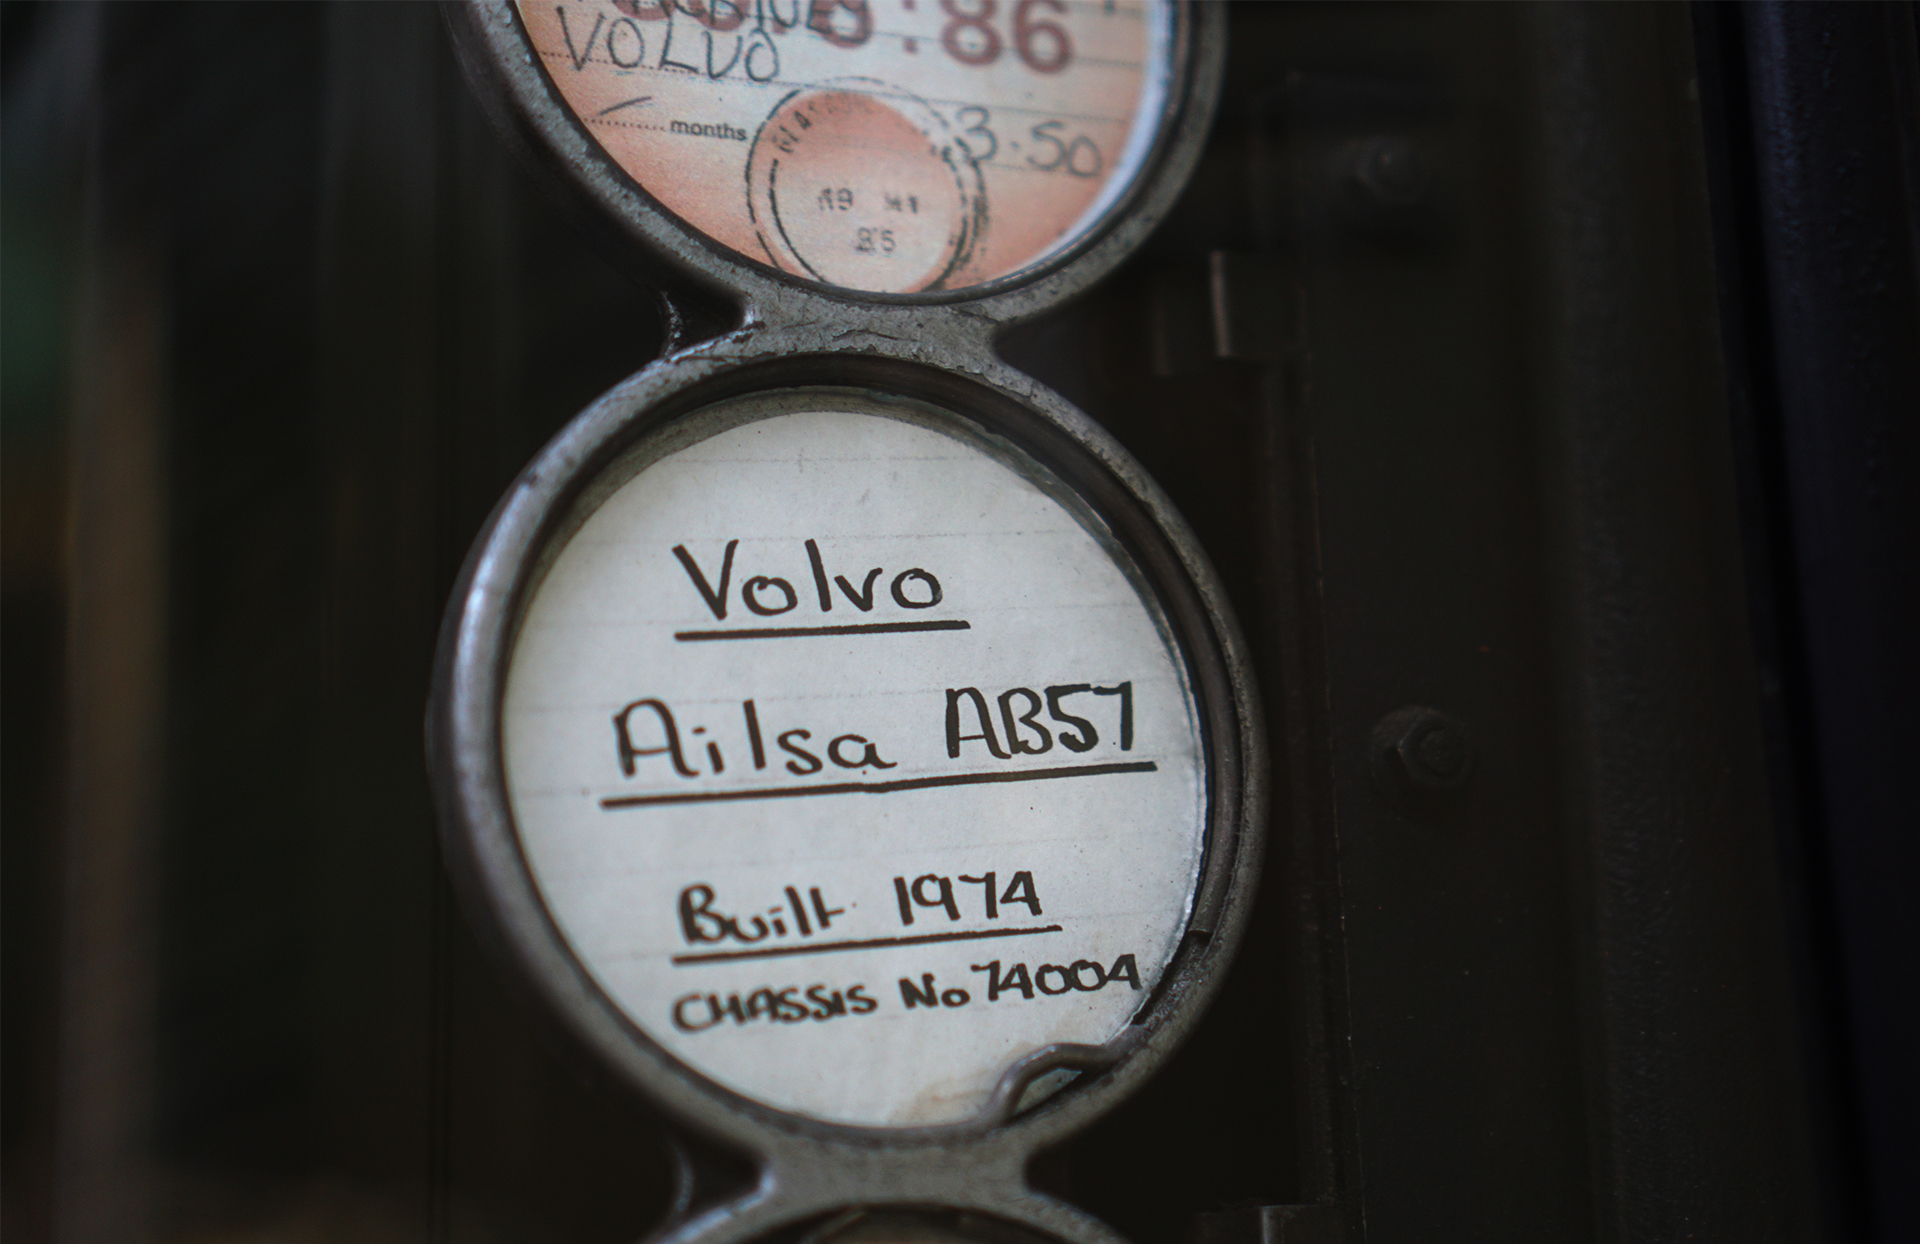 86
VOLVO
months
3.50
Volvo
Ailsa AB57
Built 1974
CHASSIS No 74004